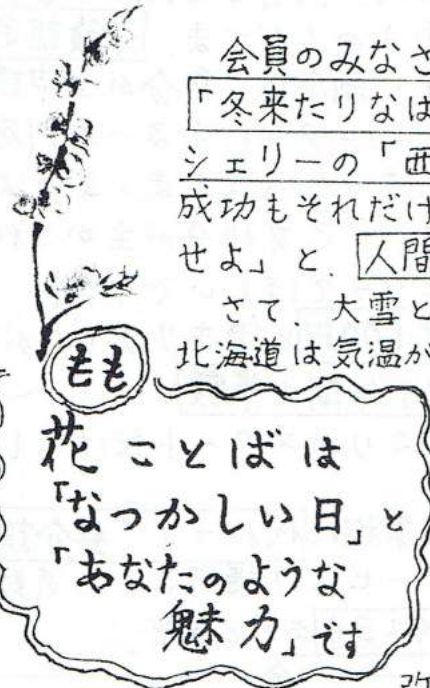 会員のみなさ
「冬来たりなば
シェリーの「西
成功もそれだけ
せよ」と、人間
さて、大雪と
北海道は気温が
もも
花ことばは
「なつかしい日」と
「あなたのような
魅力」です